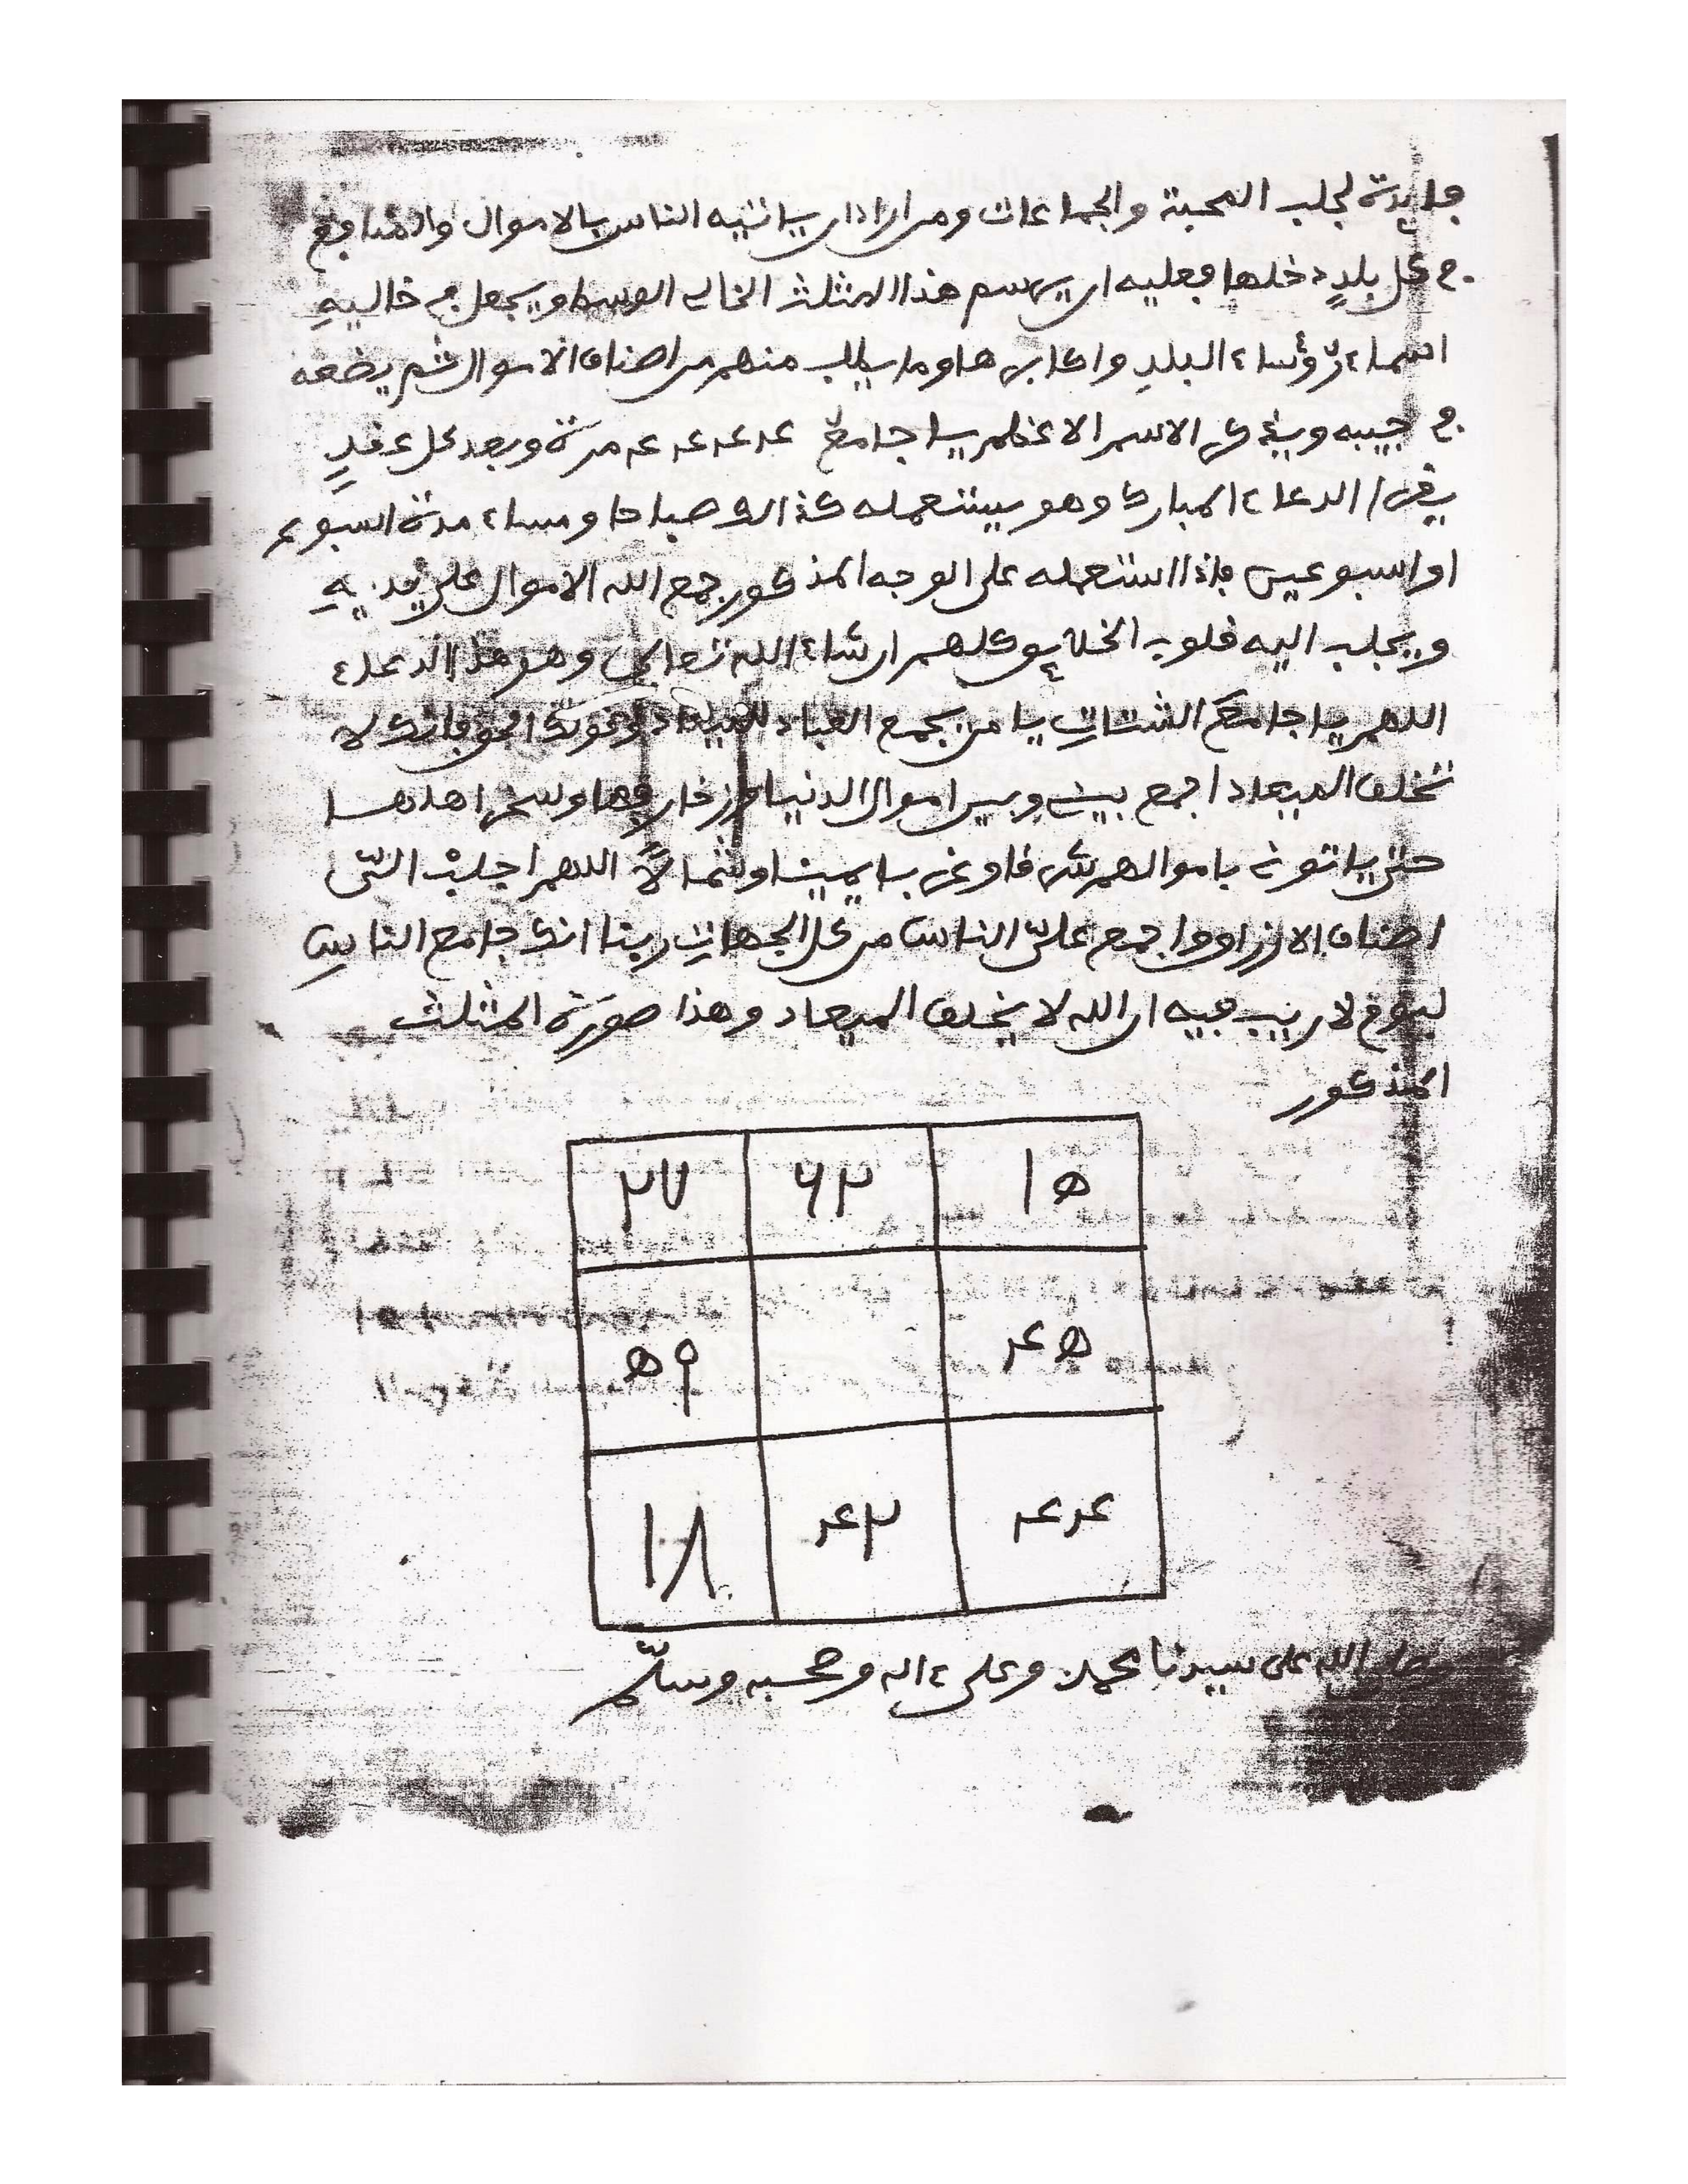 فايدة لجلب المحبة والجماعات ومن اراد ان ياتيه الناس بالاموال والمنافع
في كل بلدٍ دخلها فعليه ان يرسم هذا المثلث الخالي الوسط ويجعل في خاليهِ
اسماء رؤساء البلدِ واكابرها وما يطلب منهم من اصناف الاموال ثم يضعه
في جيبه ويذكر الاسم الاعظم يا جامع ٤٤٤٤ مرة وبعد كل عقدٍ
يقرا الدعاء المبارك وهو يستعمله كذالك صباحا ومساء مدة اسبوع
او اسبوعين فاذا استعمله على الوجه المذكور جمع الله الاموال على يديهِ
ويجلب اليه قلوب الخلايق كلهم ان شاء الله تعالى وهو هذا الدعاء
اللهم يا جامع الشتاتِ يا من يجمع العباد للميعاد الحق فانك لا
تخلف الميعاد اجمع بيني وبين اموال الدنيا وزخارفها وسخر اهلها
حتى ياتوني باموالهم شرقا وغربا يمينا وشمالاً اللهم اجلبْ اليّ
اصناف الارزاق واجمع عليّ الناس من كل الجهاتِ ربنا انك جامع الناسِ
ليوم لا ريب فيه ان الله لا يخلف الميعاد وهذا صورة المثلث
المذكور
٢٧ ٦٣ ١٥
٥٩ ٤٥
١٨ ٤٣ ٤٤
وصلى الله على سيدنا محمد وعلى ءاله وصحبه وسلّم